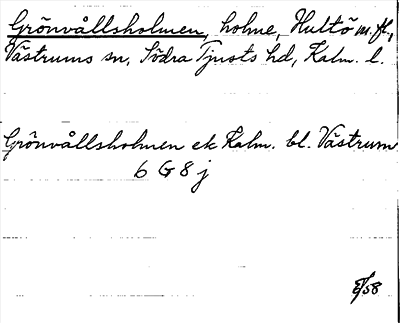 Grönvållsholmen, holme, Hultö m. fl.,
Västrums sn, Södra Tjusts hd, Kalm. l.
Grönvållsholmen ek Kalm. bl. Västrum
6 G 8 j
/58